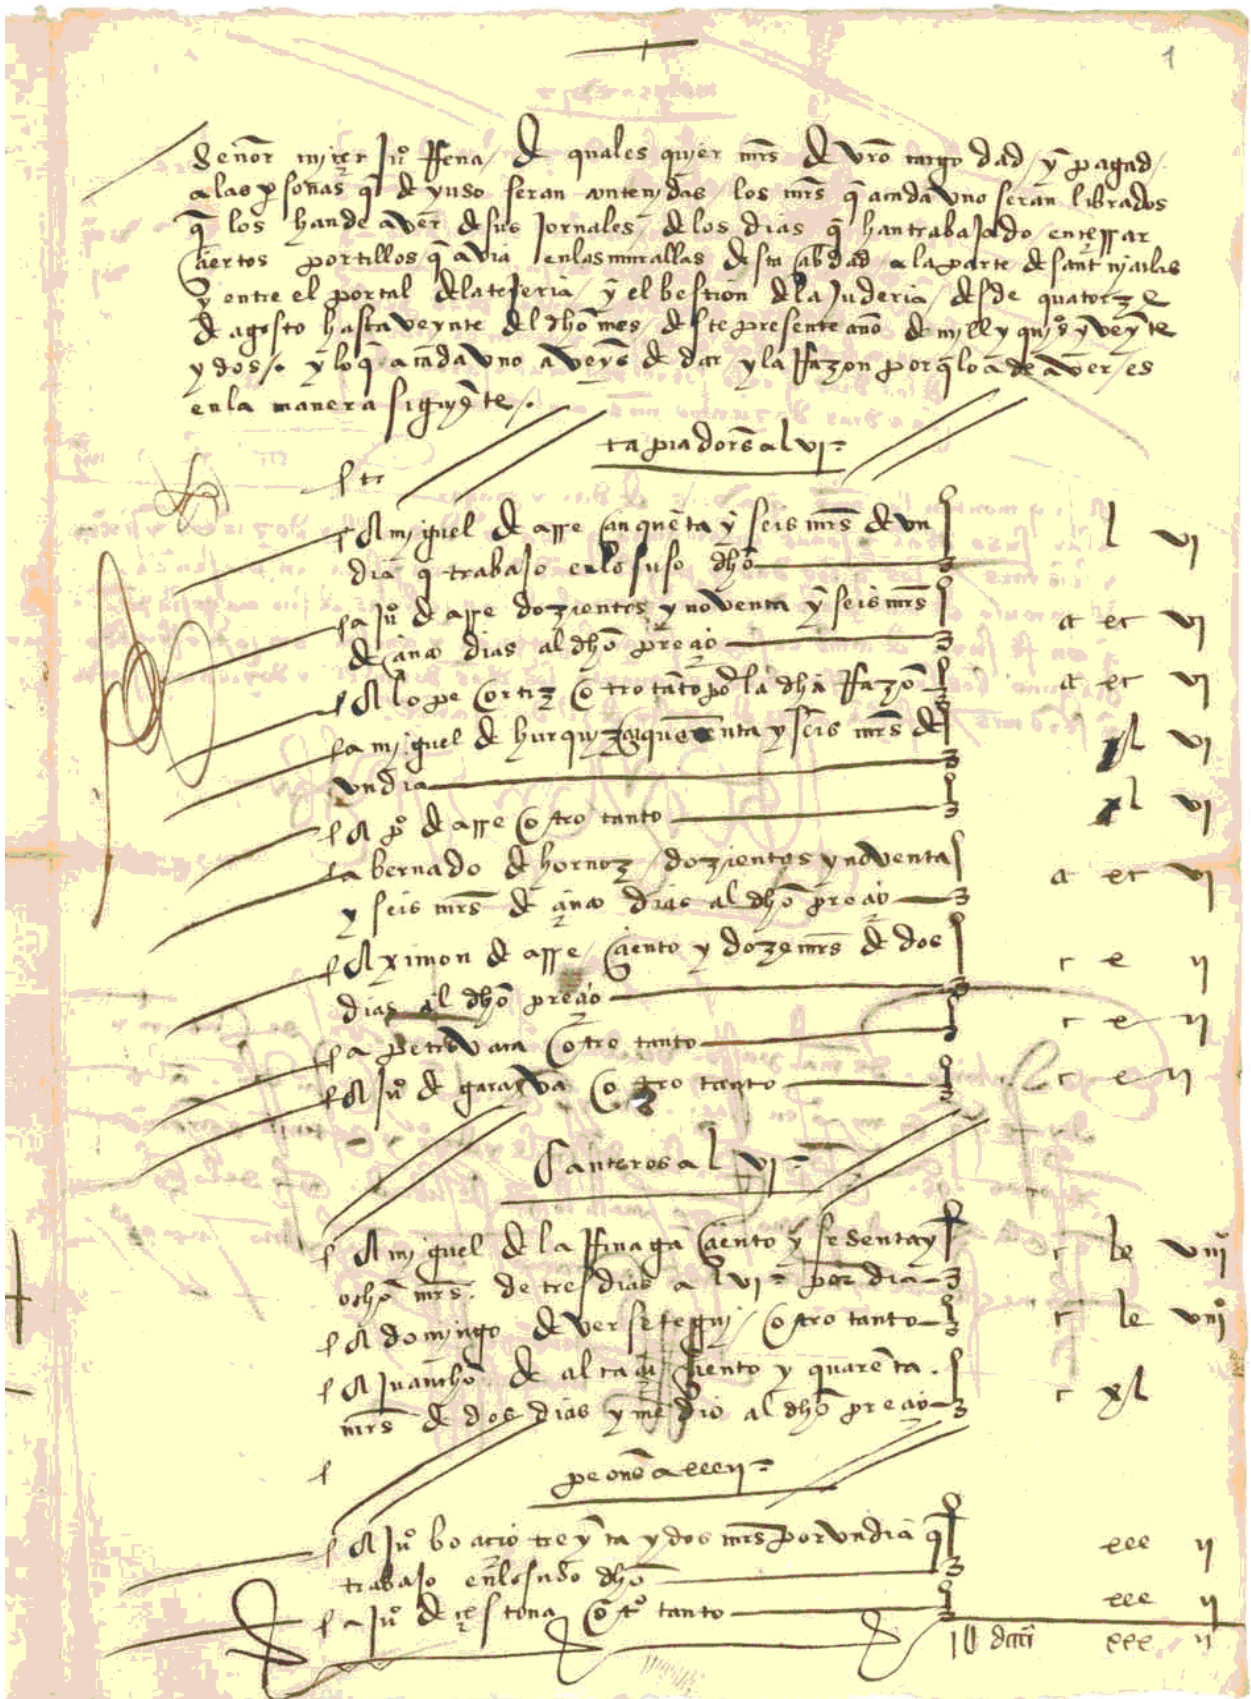 1
Señor micer Ju° Rena / de quales quier mrs de vro cargo dad / y pagad /
a las psonas q de yuso seran contenydas / los mrs q a cada uno seran librados
q los han de aver de sus jornales / de los dias q han trabajado en cerrar
ciertos portillos q avia en las murallas desta cibdad a la parte de sant nycolas
y entre el portal de la tejeria / y el bestion de la juderia / desde quatorze
de agosto hasta veynte del dho mes / deste presente año de mill y quis y veynte
y dos /. y lo q a cada uno aveys de dar y la Razon por q lo a de aver / es
en la manera siguyete /.
tapiadores a lvi
A myguel de asse cinquēta y seis mrs de un
dia q trabajo en lo suso dho
l vi
a ju° de asse dozientos y noventa y seis mrs
de cinco dias al dho precio
cc xc vi
A lope cortiz otro tāto por la dha Razō
cc xc vi
a myguel de hurquy quarenta y seis mrs de
un dia
xl vi
A p° de asse otro tanto
xl vi
a bernado de hornoz / dozientos y noventa
y seis mrs de cinco dias al dho precio
cc xc vi
A ximon de asse / ciento y doze mrs de dos
dias al dho precio
c x ii
a petro vaca otro tanto
c x ii
A ju° de garayva otro tanto
c x ii
Canteros a lvi
A myguel de la Rinaga ciento y sesenta y
ocho mrs. de tres dias a lvi por dia
c lx viii
A domingo de versetegui / otro tanto
c lx viii
A juancho de ciento y quarēta.
mrs de dos dias y medio al dho precio
c xl
peones a xxxii
A ju° bocacio treynta y dos mrs por un dia q
trabajo en lo suso dho
xxx ii
a ju° de cestona ot° tanto
xxx ii
xxx ii